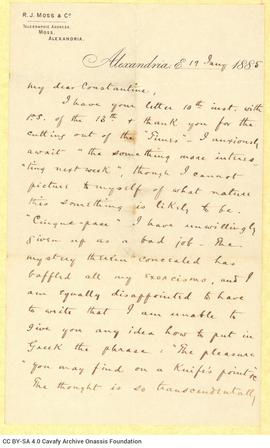 R. J. MOSS & Cº
TELEGRAPHIC ADDRESS,
MOSS,
ALEXANDRIA.
Alexandria. E 19 Jany 1885
My dear Constantine,
I have your letter 10th inst. with
P.S. of the 13th & thank you for the
cutting out of the "Times" - I anxiously
await "the something more interes-
"ting next week", though I cannot
picture to myself of what nature
this something is likely to be.
"Cinque-pace" I have unwillingly
given up as a bad job - The
mystery therein concealed has
baffled all my exorcisms, and I
am equally disappointed to have
to write that I am unable to
give you any idea how to put in
Greek the phrase: "The pleasure
"you may find on a Knife's point"
The thought is so transcendentally
CC BY-SA 4.0 Cavafy Archive Onassis Foundation